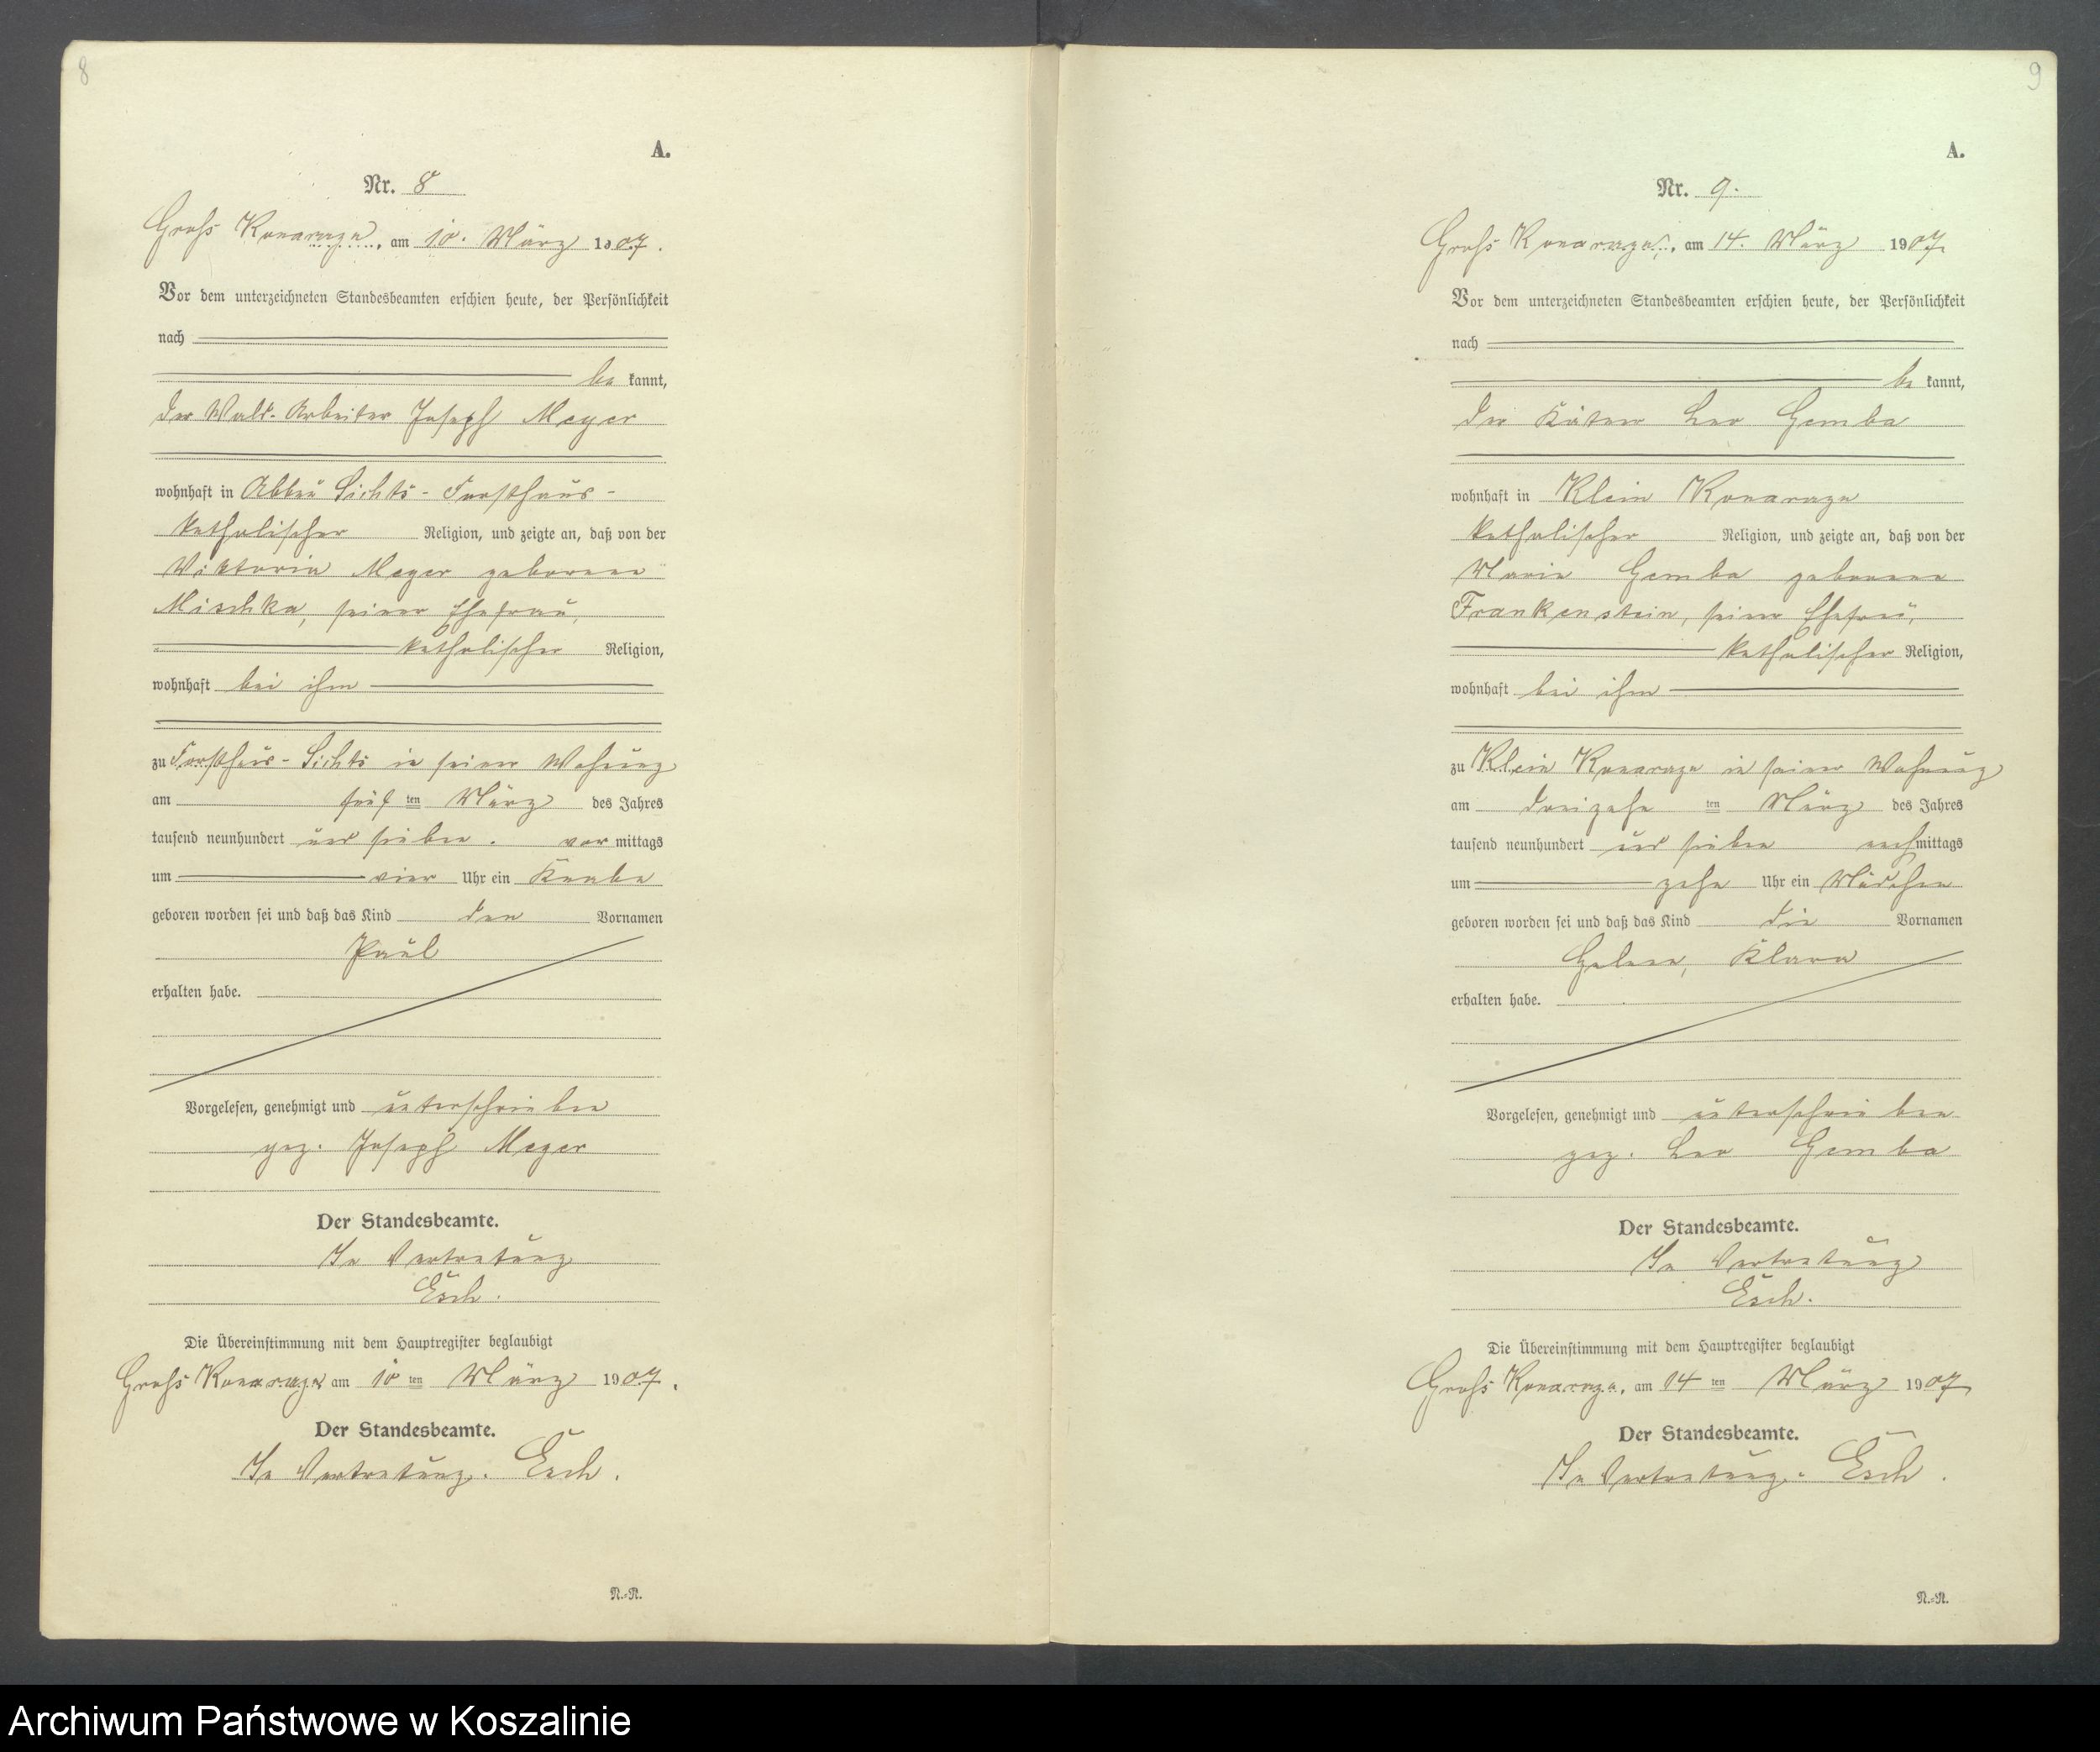 8
A.
Nr. 8
Groß Konarczyn, am 10. März 1907.
Vor dem unterzeichneten Standesbeamten erschien heute, der Persönlichkeit
nach
be kannt,
der Wald-Arbeiter Joseph Meyer
wohnhaft in Abbau Sichts-Forsthaus-
katholischer Religion, und zeigte an, daß von der
Viktoria Meyer geborene
Mischka, seiner Ehefrau,
katholischer Religion,
wohnhaft bei ihm
zu Forsthaus-Sichts in seiner Wohnung
am fünf ten März des Jahres
tausend neunhundert und sieben. vor mittags
um vier Uhr ein Knabe
geboren worden sei und daß das Kind den Vornamen
Paul
erhalten habe.
Vorgelesen, genehmigt und unterschrieben
gez. Joseph Meyer
Der Standesbeamte.
In Vertretung
Esch.
Die Übereinstimmung mit dem Hauptregister beglaubigt
Groß Konarczyn am 10 ten März 1907.
Der Standesbeamte.
In Vertretung. Esch.
N.-R.
9
A.
Nr. 9.
Groß Konarczyn, am 14. März 1907.
Vor dem unterzeichneten Standesbeamten erschien heute, der Persönlichkeit
nach
be kannt,
der Kätner Leo Gemba
wohnhaft in Klein Konarczyn
katholischer Religion, und zeigte an, daß von der
Maria Gemba geborene
Frankenstein, seiner Ehefrau,
katholischer Religion,
wohnhaft bei ihm
zu Klein Konarczyn in seiner Wohnung
am dreizehn ten März des Jahres
tausend neunhundert und sieben nachmittags
um zehn Uhr ein Mädchen
geboren worden sei und daß das Kind die Vornamen
Helene, Klara
erhalten habe.
Vorgelesen, genehmigt und unterschrieben
gez. Leo Gemba
Der Standesbeamte.
In Vertretung
Esch.
Die Übereinstimmung mit dem Hauptregister beglaubigt
Groß Konarczyn, am 14 ten März 1907
Der Standesbeamte.
In Vertretung. Esch.
N.-R.
Archiwum Państwowe w Koszalinie